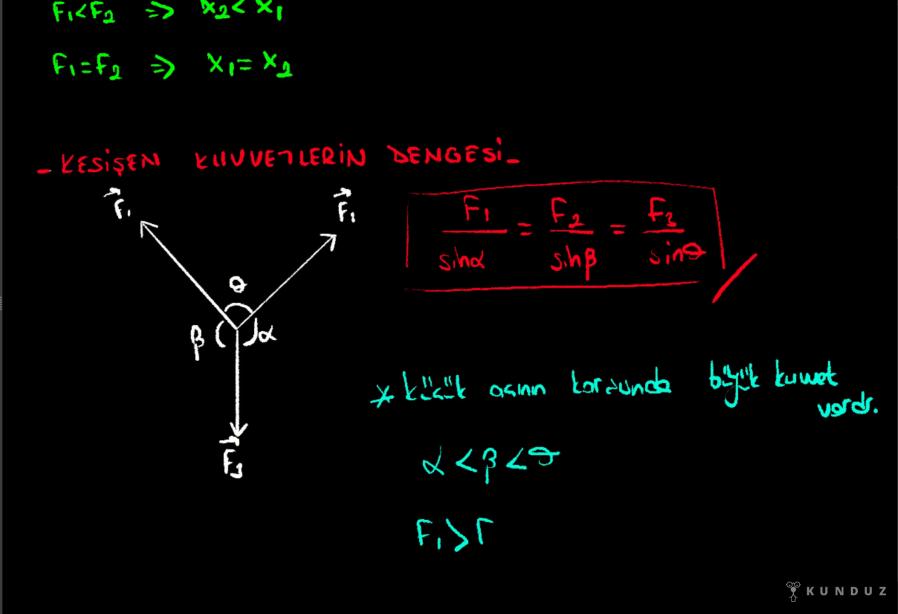 F₁<F₂ ⇒ x₂<x₁
F₁=F₂ ⇒ x₁=x₂
- KESİŞEN KUVVETLERİN DENGESİ -
F₁
F₁
θ
β
α
F₃
F₁/sinα = F₂/sinβ = F₃/sinθ
* küçük açının karşısında büyük kuvvet
vardır.
α<β<θ
F₁>F
KUNDUZ